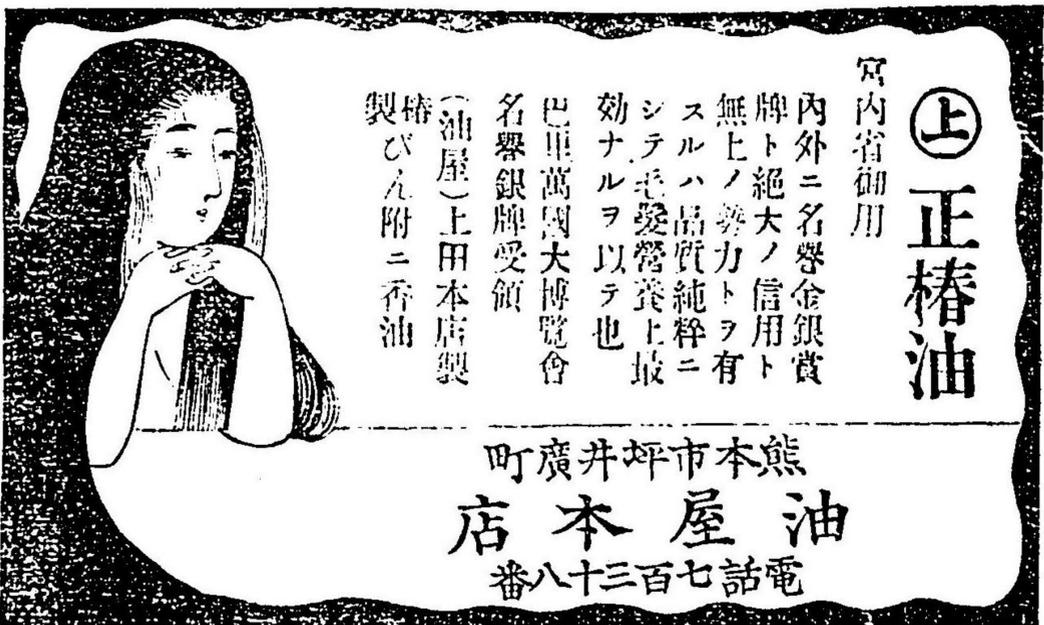 ㊤ 正椿油
宮内省御用
內外ニ名譽金銀賞
牌ト絕大ノ信用ト
無上ノ勢力トヲ有
スルハ品質純粹ニ
シテ毛髮營養上最
効ナルヲ以テ也
巴里萬國大博覽會
名譽銀牌受領
(油屋)上田本店製
椿びん附ニ香油
製
熊本市坪井廣町
油屋本店
電話七百三十八番